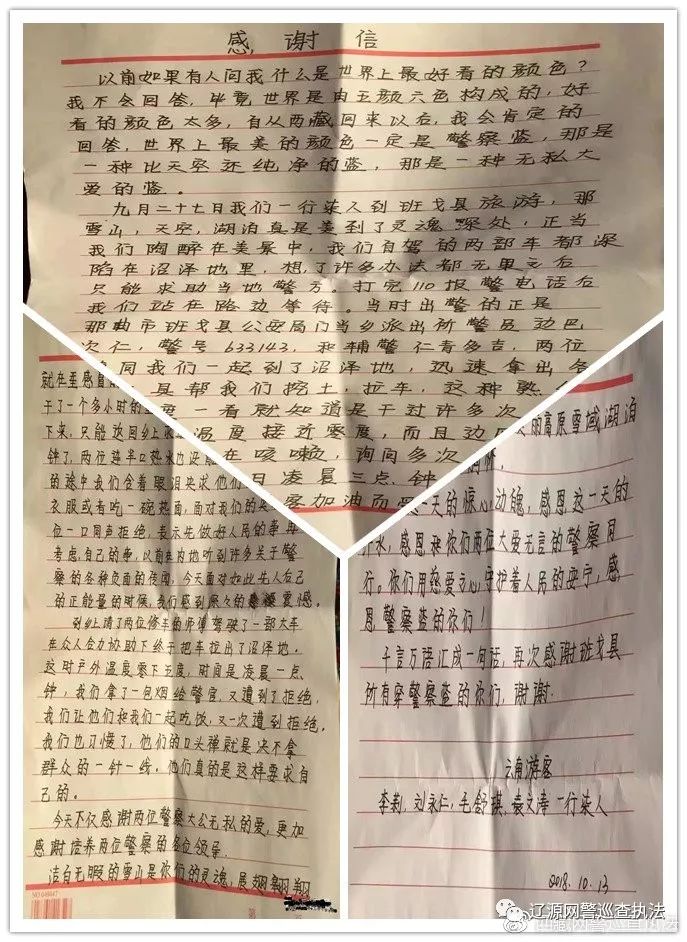 感谢信
以前如果有人问我什么是世界上最好看的颜色？
我不会回答，毕竟世界是由五颜六色构成的，好
看的颜色太多，自从西藏回来以后，我会肯定的
回答，世界上最美的颜色一定是警察蓝，那是
一种比天空还纯净的蓝，那是一种无私大
爱的蓝。
九月二十七日我们一行柒人到班戈县旅游，那
雪山，天空，湖泊真是美到了灵魂深处，正当
我们陶醉在美景中，我们自驾的两部车都深
陷在沼泽地里，想了许多办法都无果之后
只能求助当地警方，打完110报警电话后
我们站在路边等待。当时出警的正是
那曲市班戈县公安局门当乡派出所警员边巴
次仁，警号633143，和辅警仁青多吉，两位
同我们一起到了沼泽地，迅速拿出各
具帮我们挖土，拉车，这种熟
一看就知道是干过许多次
温度接近零度，而且边
在咳嗽，询问多次
日凌晨三点钟
客加油而
就在至感
干了一个多小时的
下来，只能返回乡上
钟了，两位连半口热水也没
的途中我们含着眼泪央求他们
衣服或者吃一碗热面，面对我们的
位一口同声拒绝，表示先做好人民的事再
考虑自己的事，以前在内地听到许多关于警
察的各种负面的传闻，今天面对如此先人后己
的正能量的时候，我们感到深深的震憾。
到乡上请了两位修车的师傅驾驶了一部大车
在众人合力协助下终于把车拉出了沼泽地。
这时户外温度零下五度，时间是凌晨一点
钟，我们拿了一包烟给警官，又遭到了拒绝，
我们让他们和我们一起吃饭，又一次遭到拒绝。
我们也习惯了，他们的口头禅就是决不拿
群众的一针一线。他们真的是这样要求自
己的。
今天不仅感谢两位警察大公无私的爱，更加
感谢培养两位警察的各位领导。
洁白无暇的雪山是你们的灵魂，展翅翱翔
NO
第
丽高原雪域湖泊
一天的惊心动魄，感恩这一天的
水，感恩和你们两位大爱无言的警察同
行，你们用慈爱之心，守护着人民的安宁，感
恩警察蓝的你们！
千言万语汇成一句话，再次感谢班戈县
所有穿警察蓝的你们，谢谢.
云南游客
李莉，刘永仁，毛舒琪，袁文涛一行柒人
2018.10.13
辽源网警巡查执法
西藏网警巡查执法